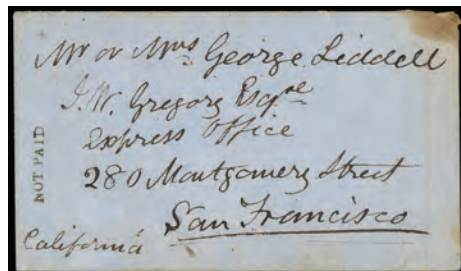 Mr or Mrs George Liddell
J. W. Gregory Esqre
Express Office
280 Montgomery Street
San Francisco
California
NOT PAID